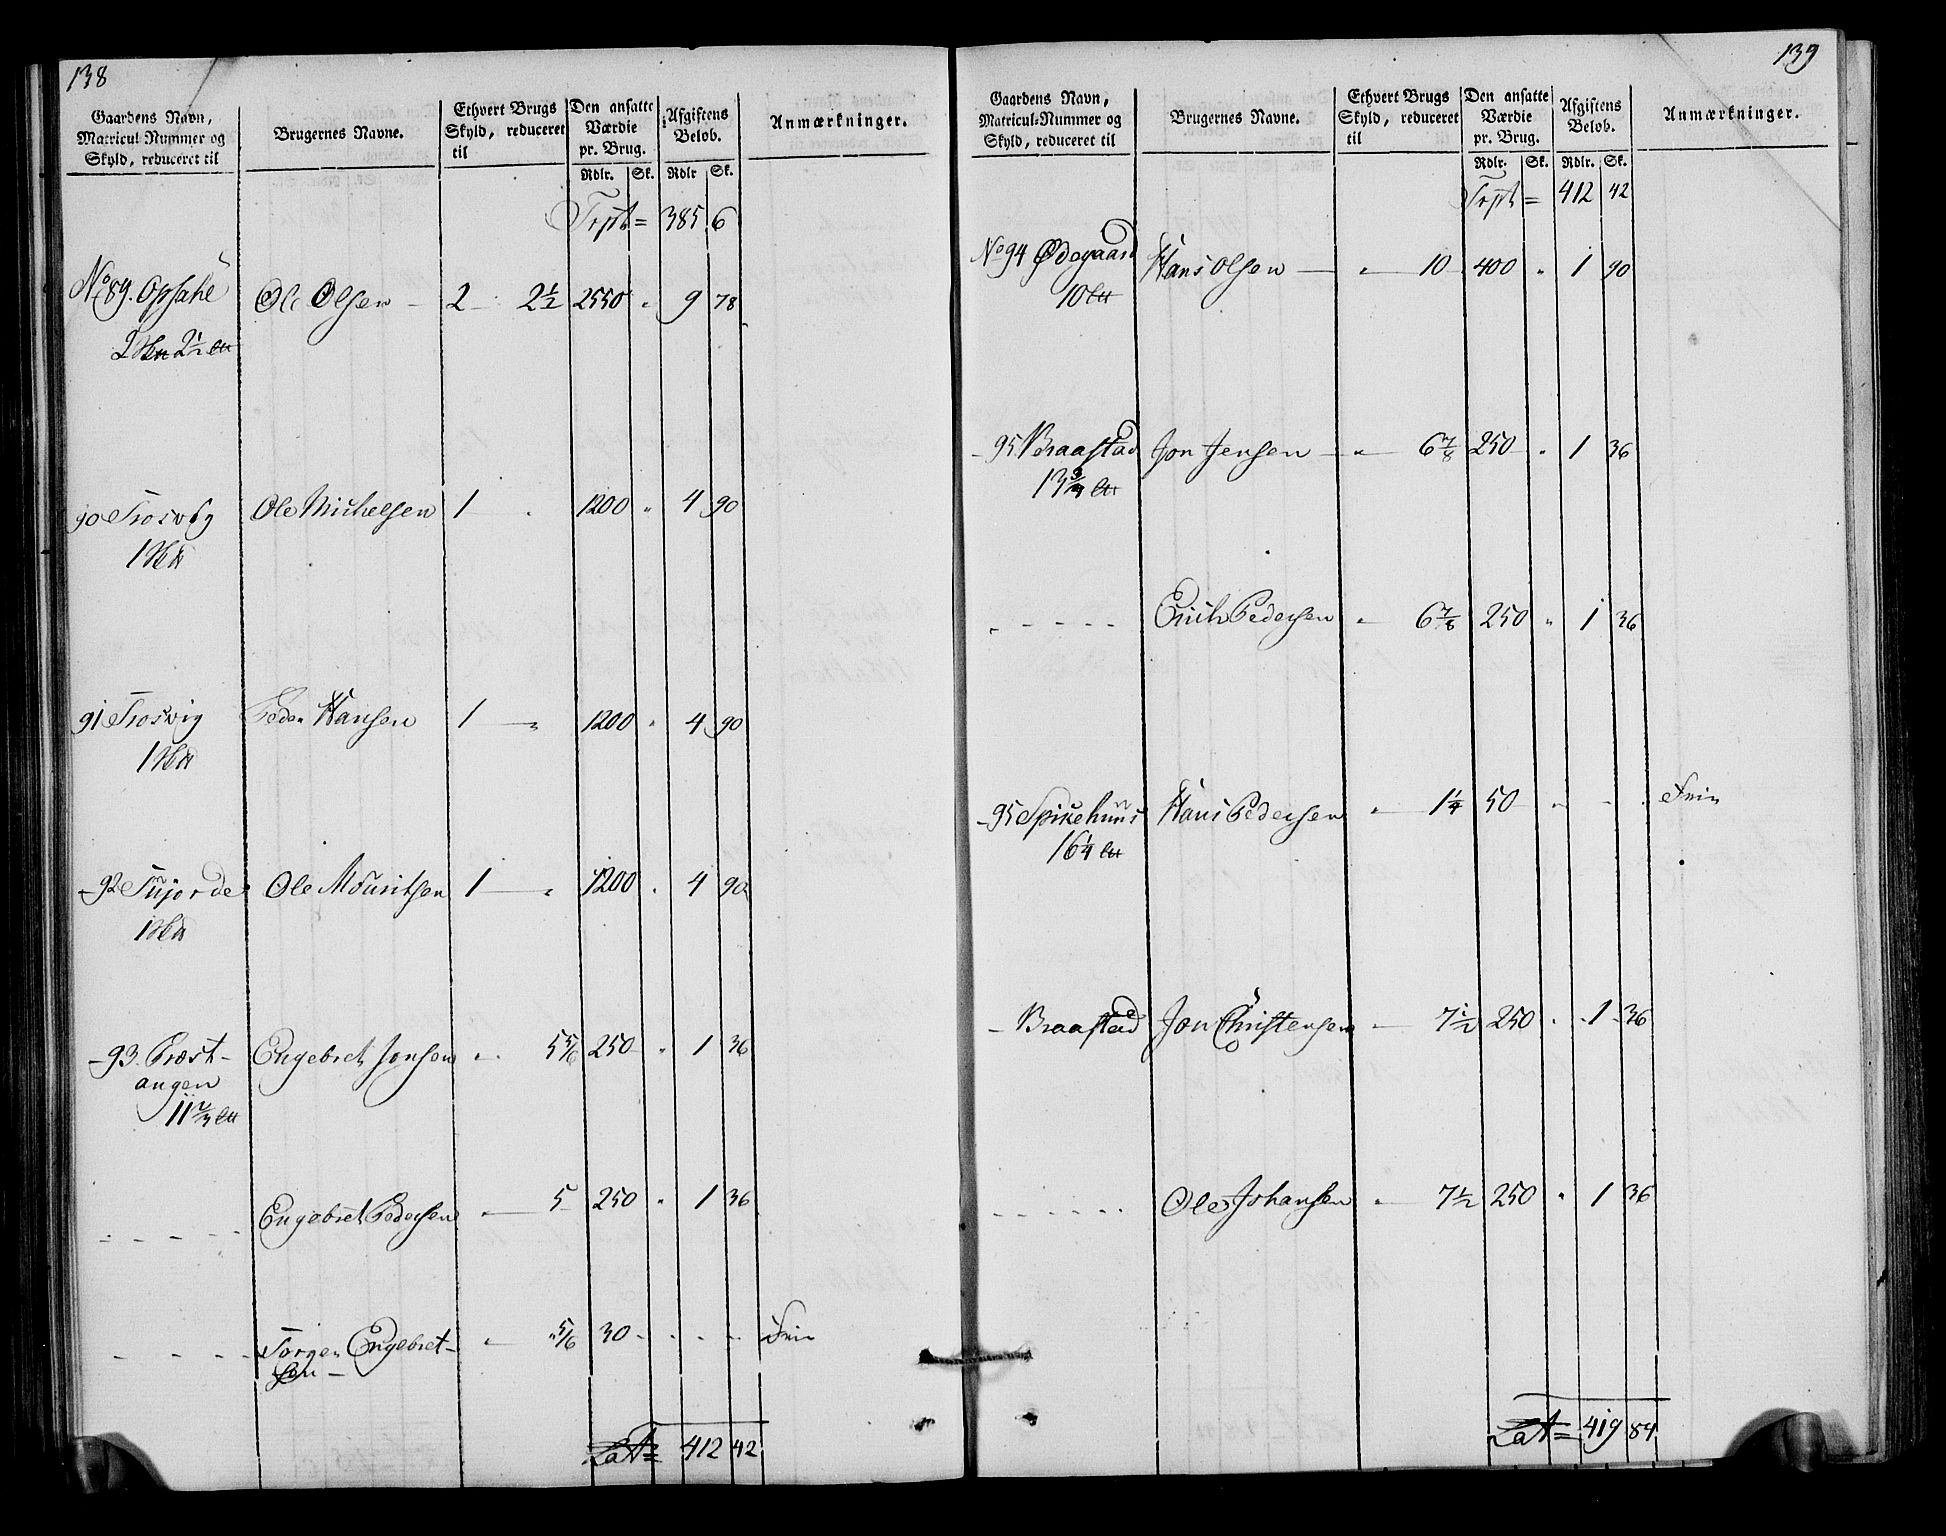 138
Gaardens Navn, Matricul-Nummer og Skyld, reduceret til
Brugernes Navne.
Ethvert Brugs Skyld, reduceret til
Den ansatte Værdie pr. Brug.
Afgiftens Beløb.
Anmærkninger.
Rdlr. Sk. Rdlr Sk.
Trspt = 385 6
No 89. Opsahl Ole Olsen - 2 2½ 2550 " 9 78
2½
90 Trosvig Ole Michelsen 1 " 1200 " 4 90
1
91 Trosvig Peder Hansen 1 " 1200 " 4 90
1
92 Ole Mouritsen 1 " 1200 " 4 90
1
93. Præst- Engebret Jonsen " 5 5/6 250 " 1 36
angen
11 2/3
- - - - Engebret Pedersen " 5 250 " 1 36
- - - - Torger Engebret- " 5/6 30 - - - - Frie
sen -
Lat = 412 42
139
Gaardens Navn, Matricul-Nummer og Skyld, reduceret til
Brugernes Navne.
Ethvert Brugs Skyld, reduceret til
Den ansatte Værdie pr. Brug.
Afgiftens Beløb.
Anmærkninger.
Rdlr. Sk. Rdlr. Sk.
Trspt = 412 42
No 94 Ødegaard Hans Olsen - " 10 400 " 1 90
10
- 95 Braastad Jon Jensen - " 6 7/8 250 " 1 36
13 3/4
- - - - - Erich Pedersen " 6 7/8 250 " 1 36
- 95 Spikehuus Hans Pedersen " 1 1/4 50 " - - Frie
16 1/4
- Braastad Jon Christensen " 7 1/2 250 " 1 36
- - - - - - Ole Johansen " 7 1/2 250 " 1 36
Lat = 419 84